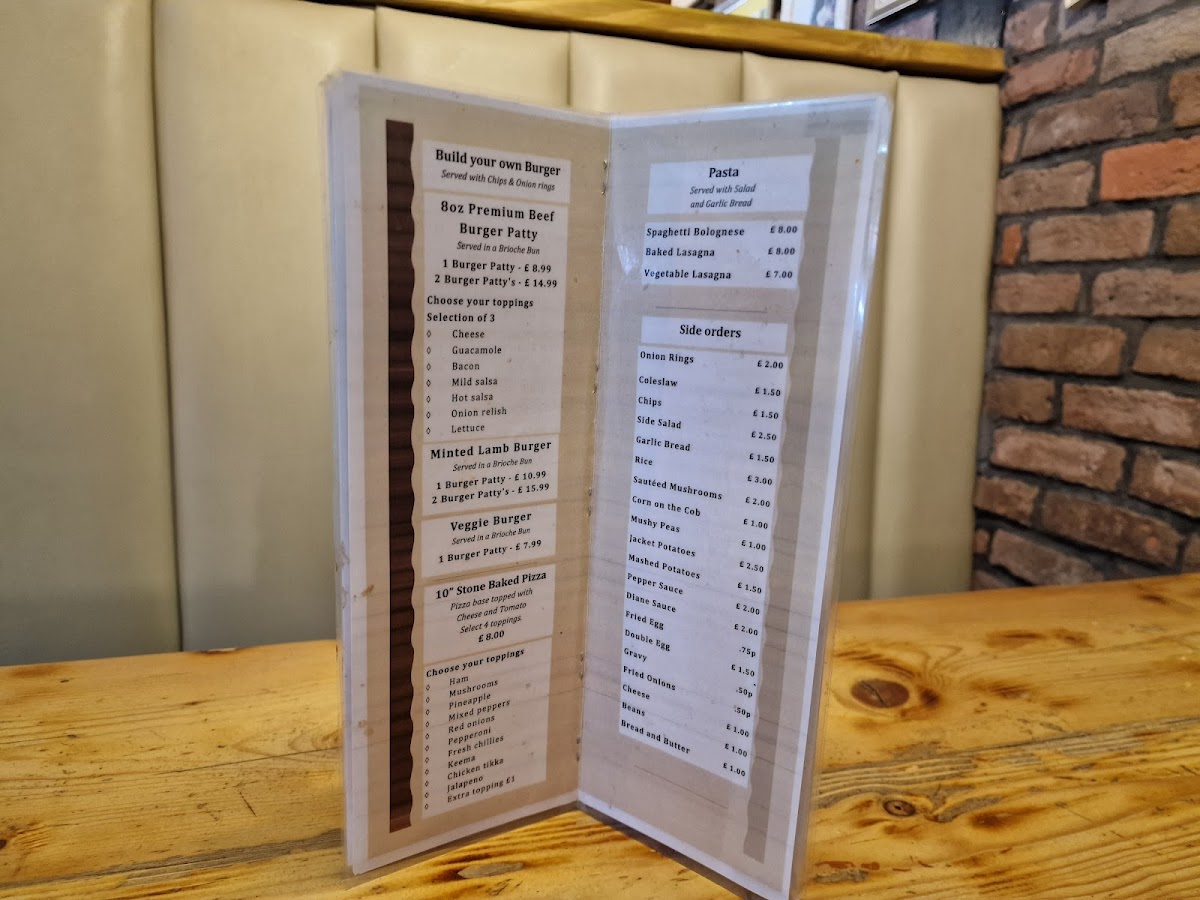 Build your own Burger
Served with Chips & Onion rings
8oz Premium Beef
Burger Patty
Served in a Brioche Bun
1 Burger Patty - £ 8.99
2 Burger Patty's - £ 14.99
Choose your toppings
Selection of 3
◊ Cheese
◊ Guacamole
◊ Bacon
◊ Mild salsa
◊ Hot salsa
◊ Onion relish
◊ Lettuce
Minted Lamb Burger
Served in a Brioche Bun
1 Burger Patty - £ 10.99
2 Burger Patty's - £ 15.99
Veggie Burger
Served in a Brioche Bun
1 Burger Patty - £ 7.99
10" Stone Baked Pizza
Pizza base topped with
Cheese and Tomato
Select 4 toppings
£ 8.00
Choose your toppings
◊ Ham
◊ Mushrooms
◊ Pineapple
◊ Mixed peppers
◊ Red onions
◊ Pepperoni
◊ Fresh chillies
◊ Keema
◊ Chicken tikka
◊ Jalapeno
◊ Extra topping £1
Pasta
Served with Salad
and Garlic Bread
Spaghetti Bolognese £ 8.00
Baked Lasagna £ 8.00
Vegetable Lasagna £ 7.00
Side orders
Onion Rings £ 2.00
Coleslaw £ 1.50
Chips £ 1.50
Side Salad £ 2.50
Garlic Bread £ 1.50
Rice £ 3.00
Sautéed Mushrooms £ 2.00
Corn on the Cob £ 1.00
Mushy Peas £ 1.00
Jacket Potatoes £ 2.50
Mashed Potatoes £ 1.50
Pepper Sauce £ 2.00
Diane Sauce £ 2.00
Fried Egg .75p
Double Egg £ 1.50
Gravy .50p
Fried Onions .50p
Cheese £ 1.00
Beans £ 1.00
Bread and Butter £ 1.00